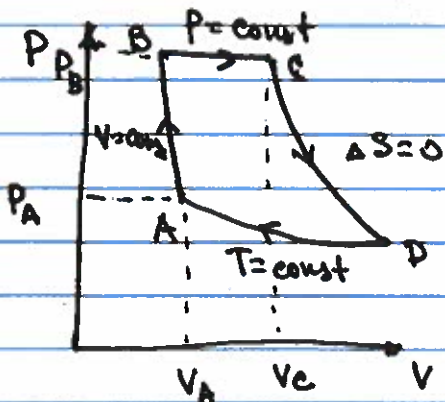 P
P_B
B
P = const
C
V = cons
ΔS = 0
P_A
A
D
T = const
V_A
V_C
V